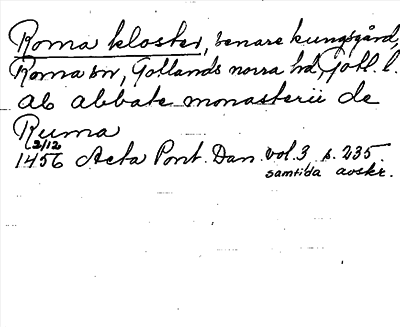 Roma kloster, senare kungsgård,
Roma sn, Gotlands norra hd, Gotl. l.
ab abbate monasterii de
Ruma
2/12
1456 Acta Pont. Dan. vol. 3 s. 235.
samtida avskr.